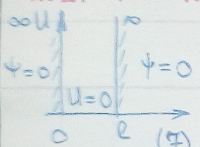 ∞ U ∞
Ψ=0 U=0 Ψ=0
0 ℓ (7)